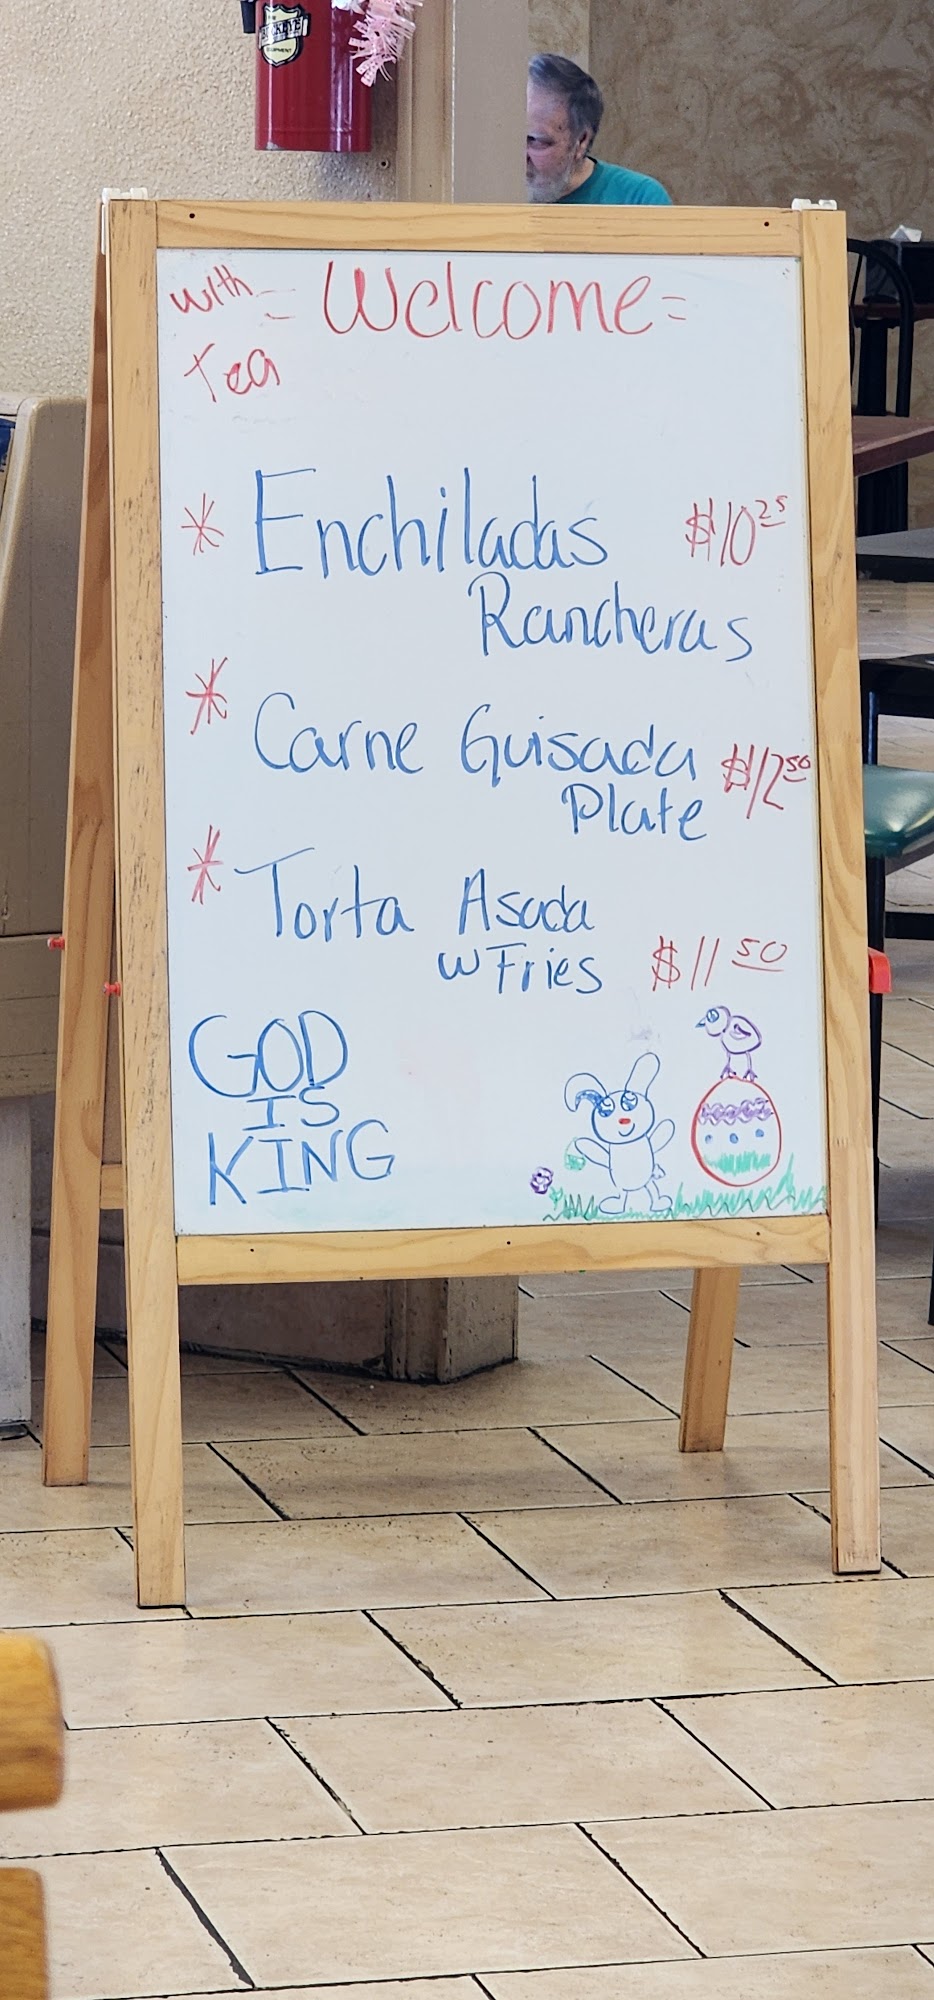 with = Welcome =
Tea
* Enchiladas $10 25
Rancheras
* Carne Guisada $12 50
Plate
* Torta Asada
w Fries $11 50
GOD
IS
KING
BUCKEYE
EQUIPMENT